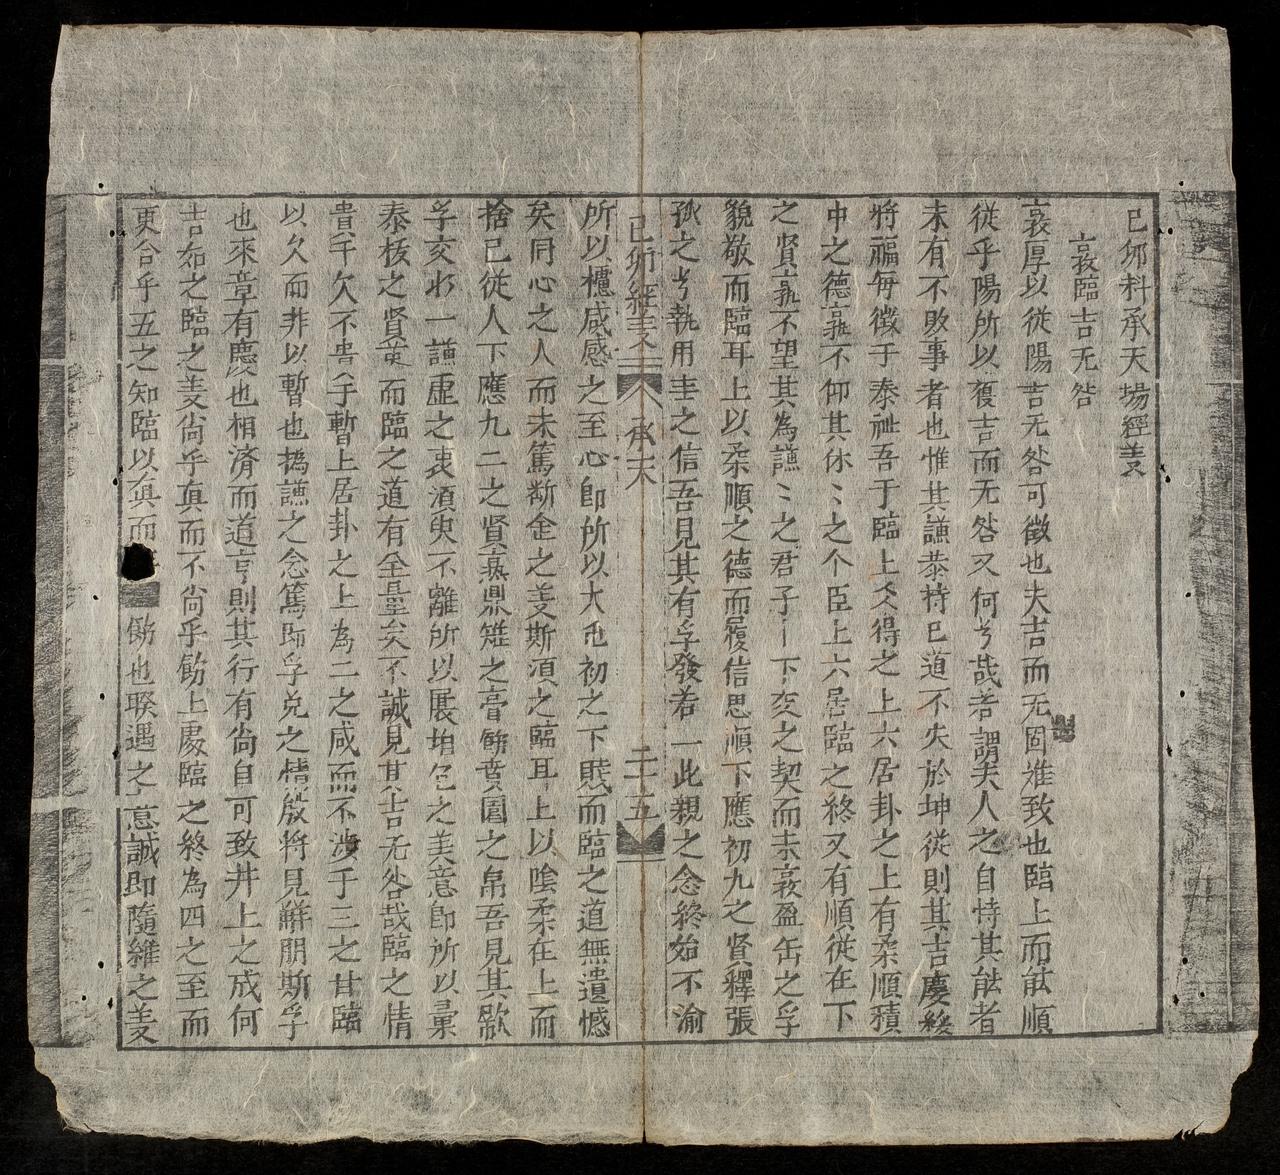 己卯科承天場經義
敦臨吉无咎
哀厚以從陽吉无咎可徵也夫吉而无固难致也臨上而能順
從乎陽所以獲吉而无咎又何芳哉若謂夫人之自恃其能者
未有不敗事者也惟其謙恭持己道不失於坤從則其吉慶綏
將福每徵于泰祉吾于臨上爻得之上六居卦之上有柔順積
中之德孰不仰其休〻之个臣上六居臨之終又有順從在下
之賢孰不望其為謙〻之君子一下交之契而未哀盈缶之孚
貌敬而臨耳上以柔順之德而履信思順下應初九之賢釋張
弧之芳執用圭之信吾見其有孚發若一此親之念終始不渝
己卯經義
承天
二十五
所以櫃感感之至心即所以大屯初之下賤而臨之道無遺憾
矣同心之人而未篤斷金之義斯須之臨耳上以陰柔在上而
捨己從人下應九二之賢烹鼎雉之膏餙賁園之帛吾見其歐
孚交水一謙虛之衷須臾不離所以展坦包之美意即所以彙
泰拔之賢黨而臨之道有全量矣不誠見其吉无咎哉臨之情
貴乎久不貴乎暫上居卦之上為二之咸而不涉于三之甘臨
以久而非以暫也撝謙之念篤斯孚兌之情殷將見群朋斯孚
也來章有慶也相濟而道亨則其行有尙自可致井上之成何
吉如之臨之義尙乎真而不尙乎餙上處臨之終為四之至而
更合乎五之知臨以真而 餙也聚遇之意誠即隨維之義